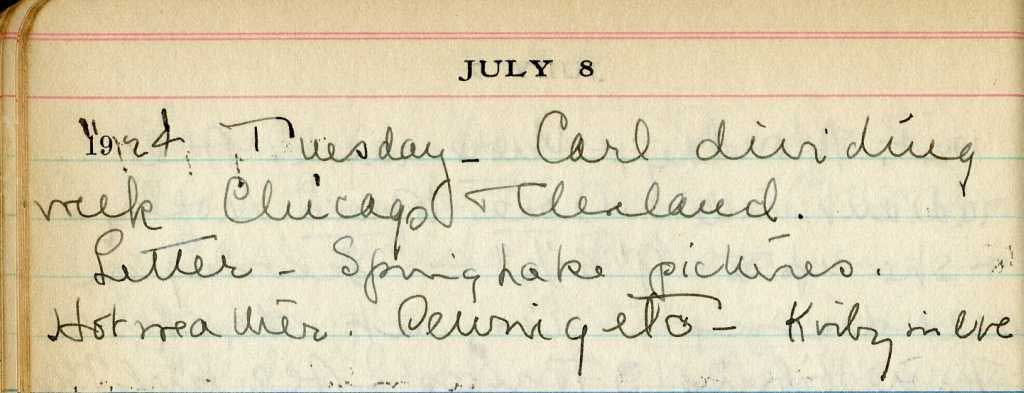 JULY 8
1924 Tuesday - Carl dividing
week Chicago + Cleveland.
Letter - Spring Lake pictures.
Hot weather. Sewing etc - Kirby in eve